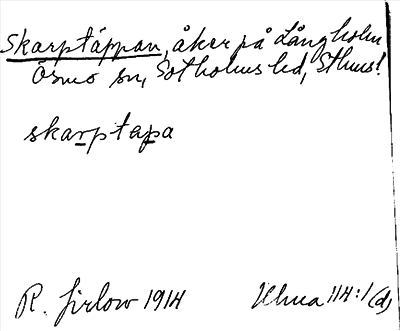 Skarptäppan, åker på Långholm
Ösmo sn, Sotholms hd, Sthms l
skarptapa
R. Jirlow 1914 Ulma 114:1 (d)